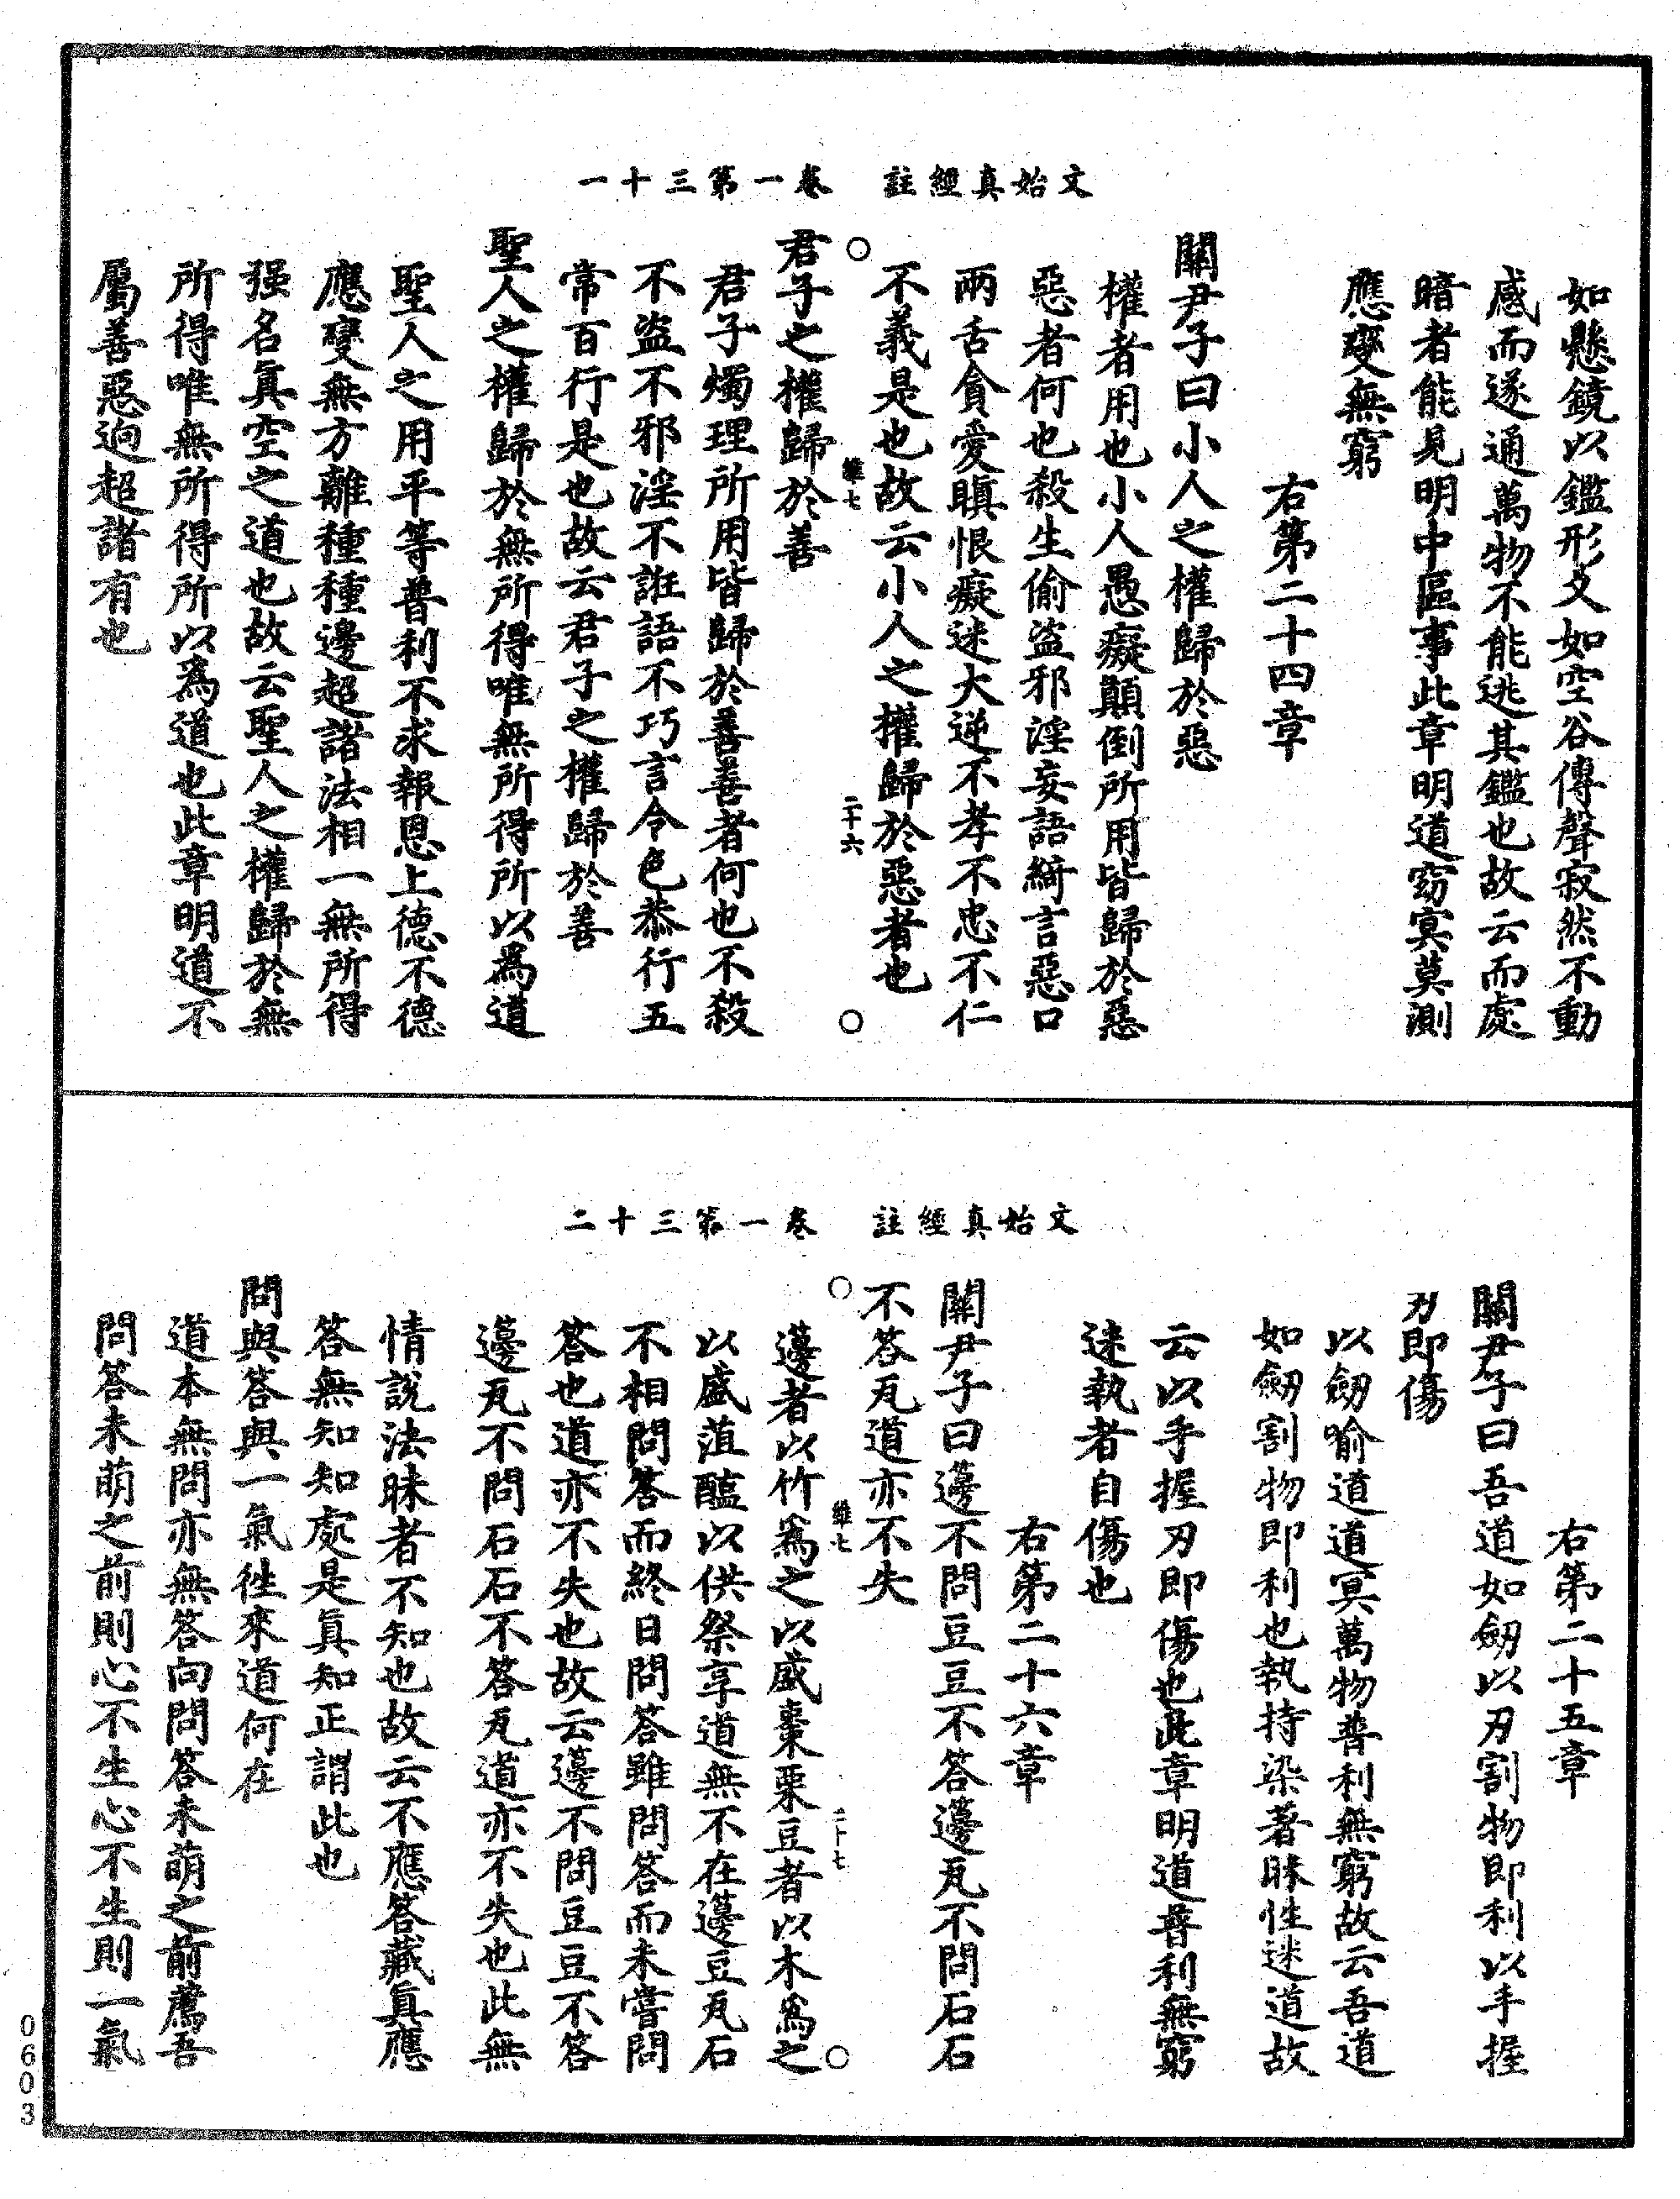 文始真經註　卷一第三十一
如懸鏡以鑑形又如空谷傳聲寂然不動
感而遂通萬物不能逃其鑑也故云而處
暗者能見明中區事此章明道窈冥莫測
應變無窮
右第二十四章
關尹子曰小人之權歸於惡
權者用也小人愚癡顛倒所用皆歸於惡
惡者何也殺生偷盜邪淫妄語綺言惡口
兩舌貪愛瞋恨癡迷大逆不孝不忠不仁
不義是也故云小人之權歸於惡者也
維七　二十六
君子之權歸於善
君子燭理所用皆歸於善善者何也不殺
不盜不邪淫不誑語不巧言令色恭行五
常百行是也故云君子之權歸於善
聖人之權歸於無所得唯無所得所以爲道
聖人之用平等普利不求報恩上德不德
應變無方離種種邊超諸法相一無所得
强名真空之道也故云聖人之權歸於無
所得唯無所得所以爲道也此章明道不
屬善惡逈超諸有也
文始真經註　卷一第三十二
右第二十五章
關尹子曰吾道如劒以刃割物即利以手握
刃即傷
以劒喻道道冥萬物普利無窮故云吾道
如劒割物即利也執持染著昧性迷道故
云以手握刃即傷也此章明道普利無窮
迷執者自傷也
右第二十六章
關尹子曰籩不問豆豆不答籩瓦不問石石
不答瓦道亦不失
維七　二十七
籩者以竹爲之以盛棗栗豆者以木爲之
以盛菹醢以供祭享道無不在籩豆瓦石
不相問答而終日問答雖問答而未嘗問
答也道亦不失也故云籩不問豆豆不答
籩瓦不問石石不答瓦道亦不失也此無
情說法昧者不知也故云不應答藏真應
答無知知處是真知正謂此也
問與答與一氣徃來道何在
道本無問亦無答向問答未萌之前薦吾
問答未萌之前則心不生心不生則一氣
0603